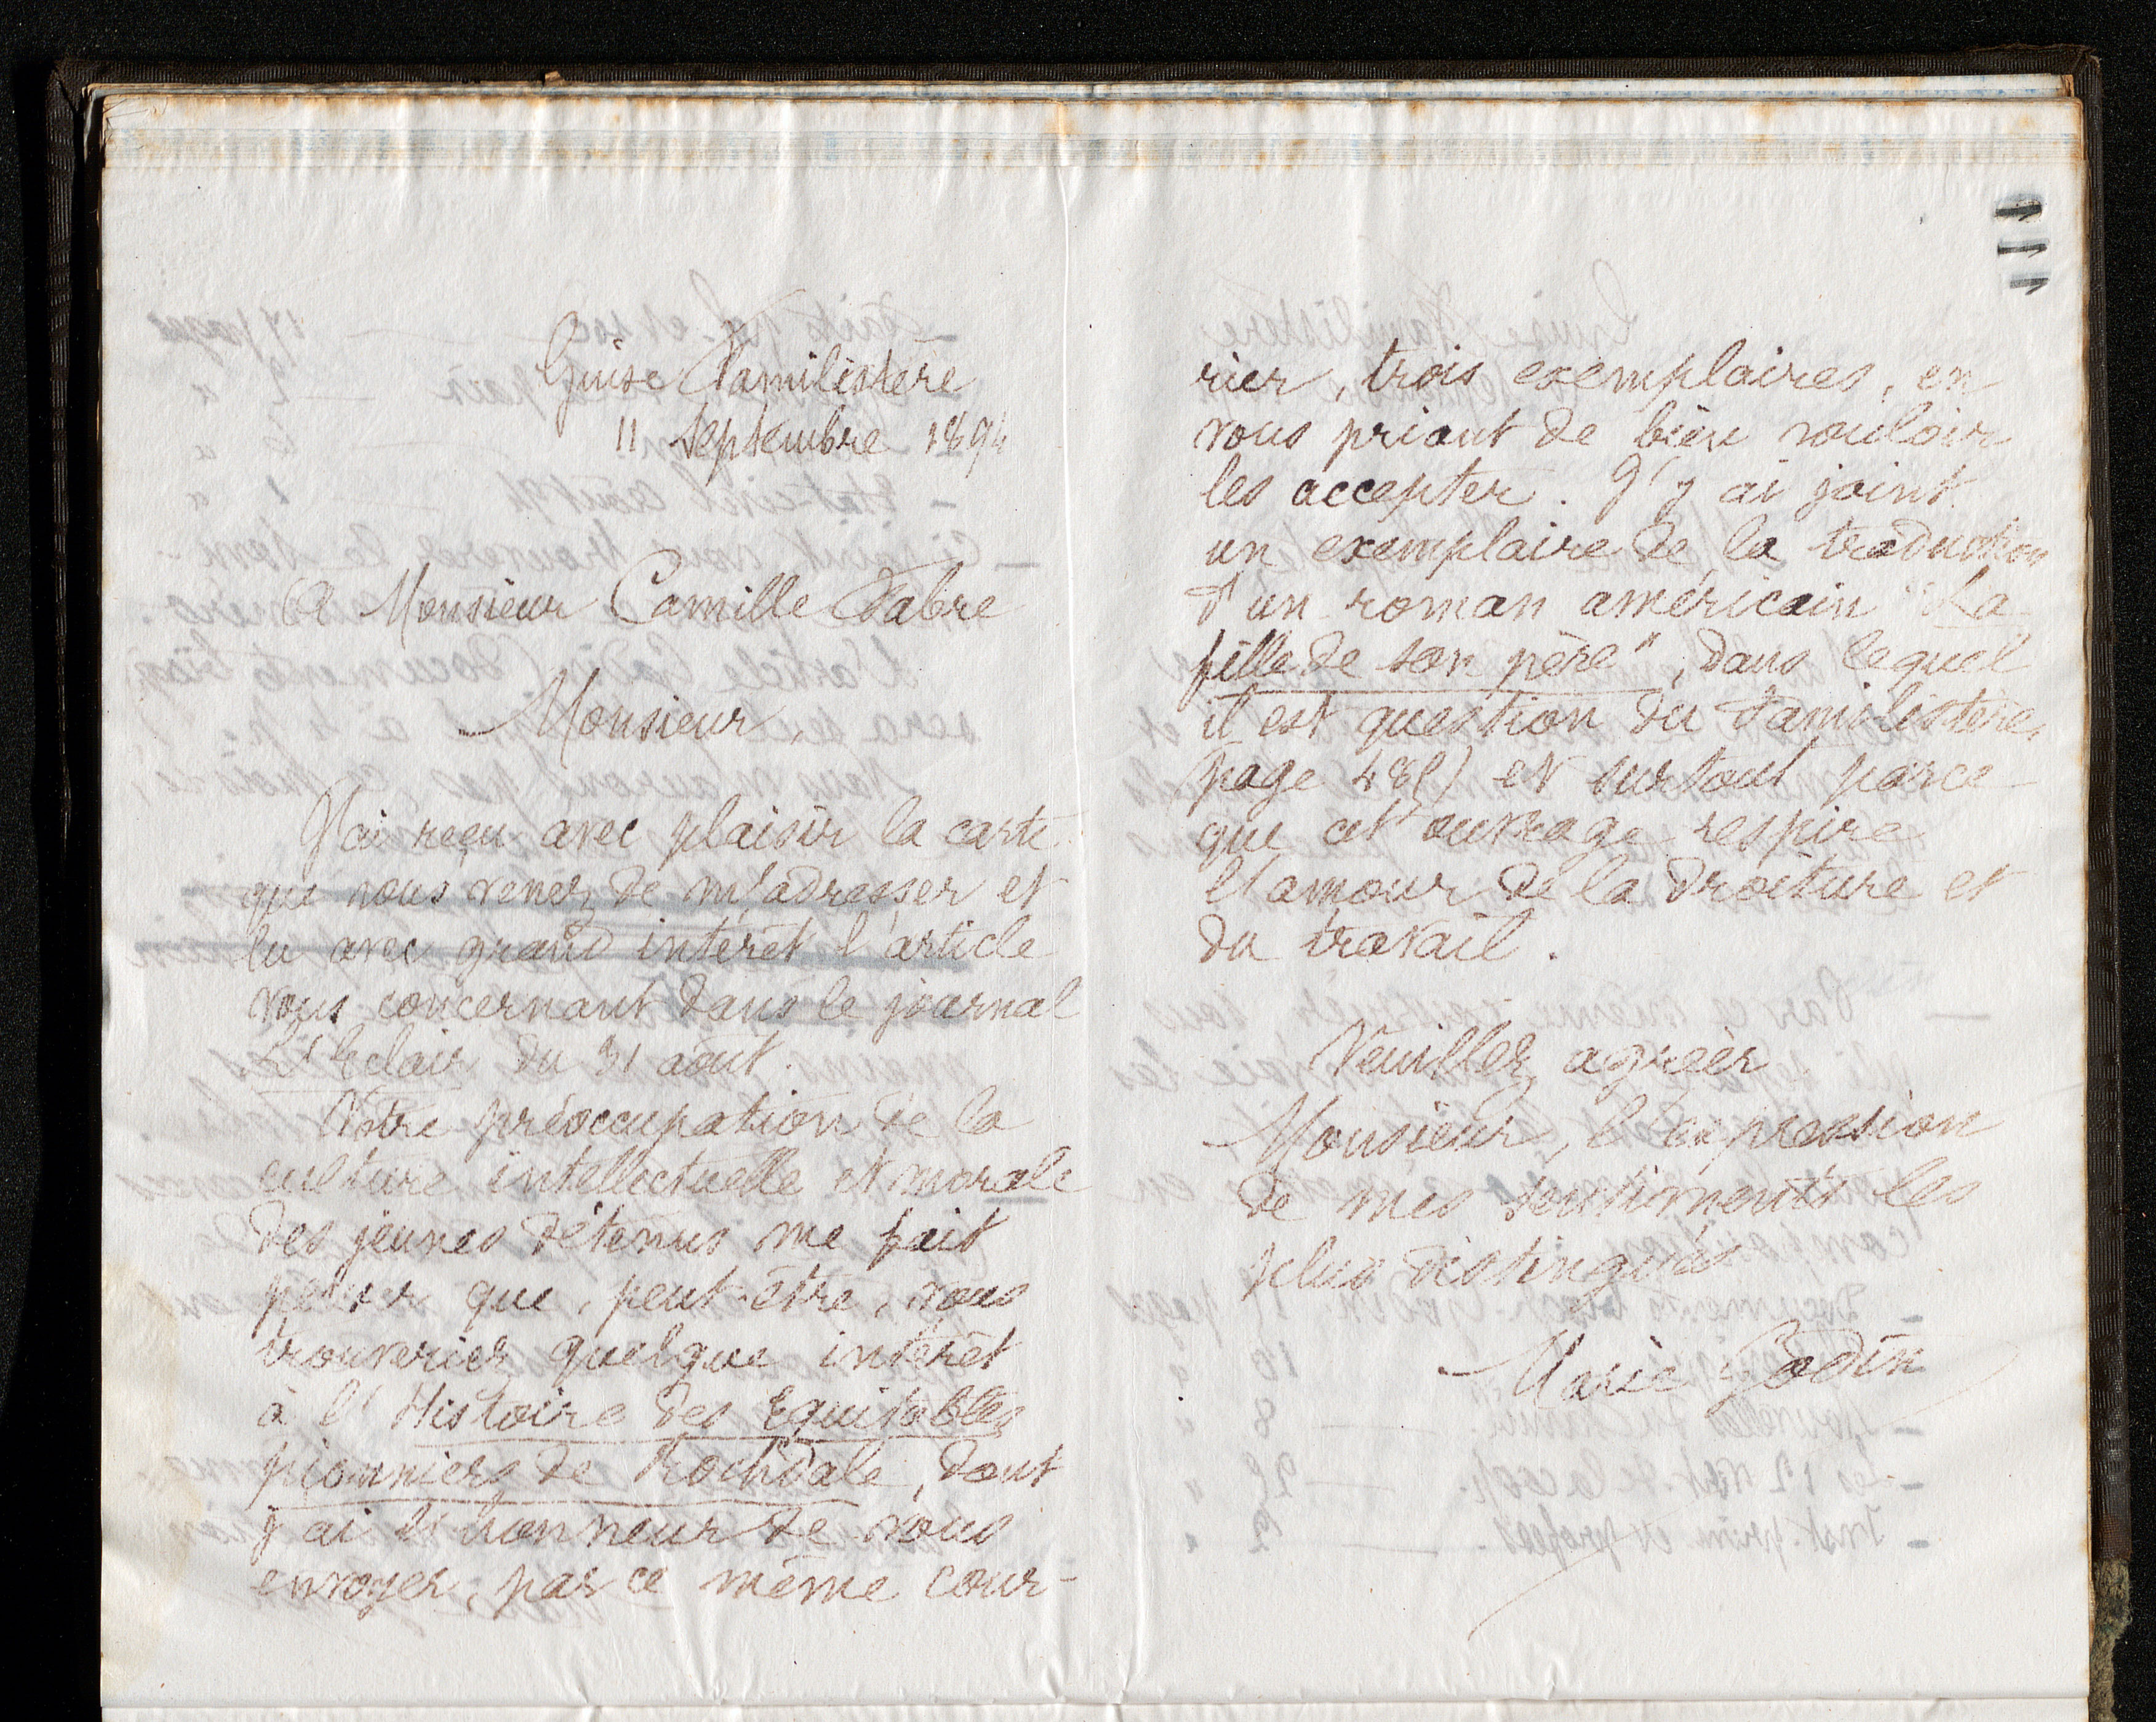 Guise Familistère
11 Septembre 1894
A Monsieur Camille Fabre
Monsieur,
J'ai reçu avec plaisir la carte
que vous venez de m'adresser et
lu avec grand intérêt l'article
vous concernant dans le journal
L'Eclair du 31 août.
Votre préoccupation de la
culture intellectuelle et morale
des jeunes détenus me fait
penser que, peut-être, vous
trouveriez quelque intérêt
à l'Histoire des Equitables
pionniers de Rochdale, dont
j'ai l'honneur de vous
envoyer, par ce même cour-
rier, trois exemplaires, en
vous priant de bien vouloir
les accepter. J'y ai joint
un exemplaire de la traduction
d'un roman américain "La
fille de son père", dans lequel
il est question du Familistère,
page et surtout parce
que cet ouvrage respire
l'amour de la droiture et
du travail.
Veuillez agréer
Monsieur, l'expression
de mes sentiments les
plus distingués
Marie Godin